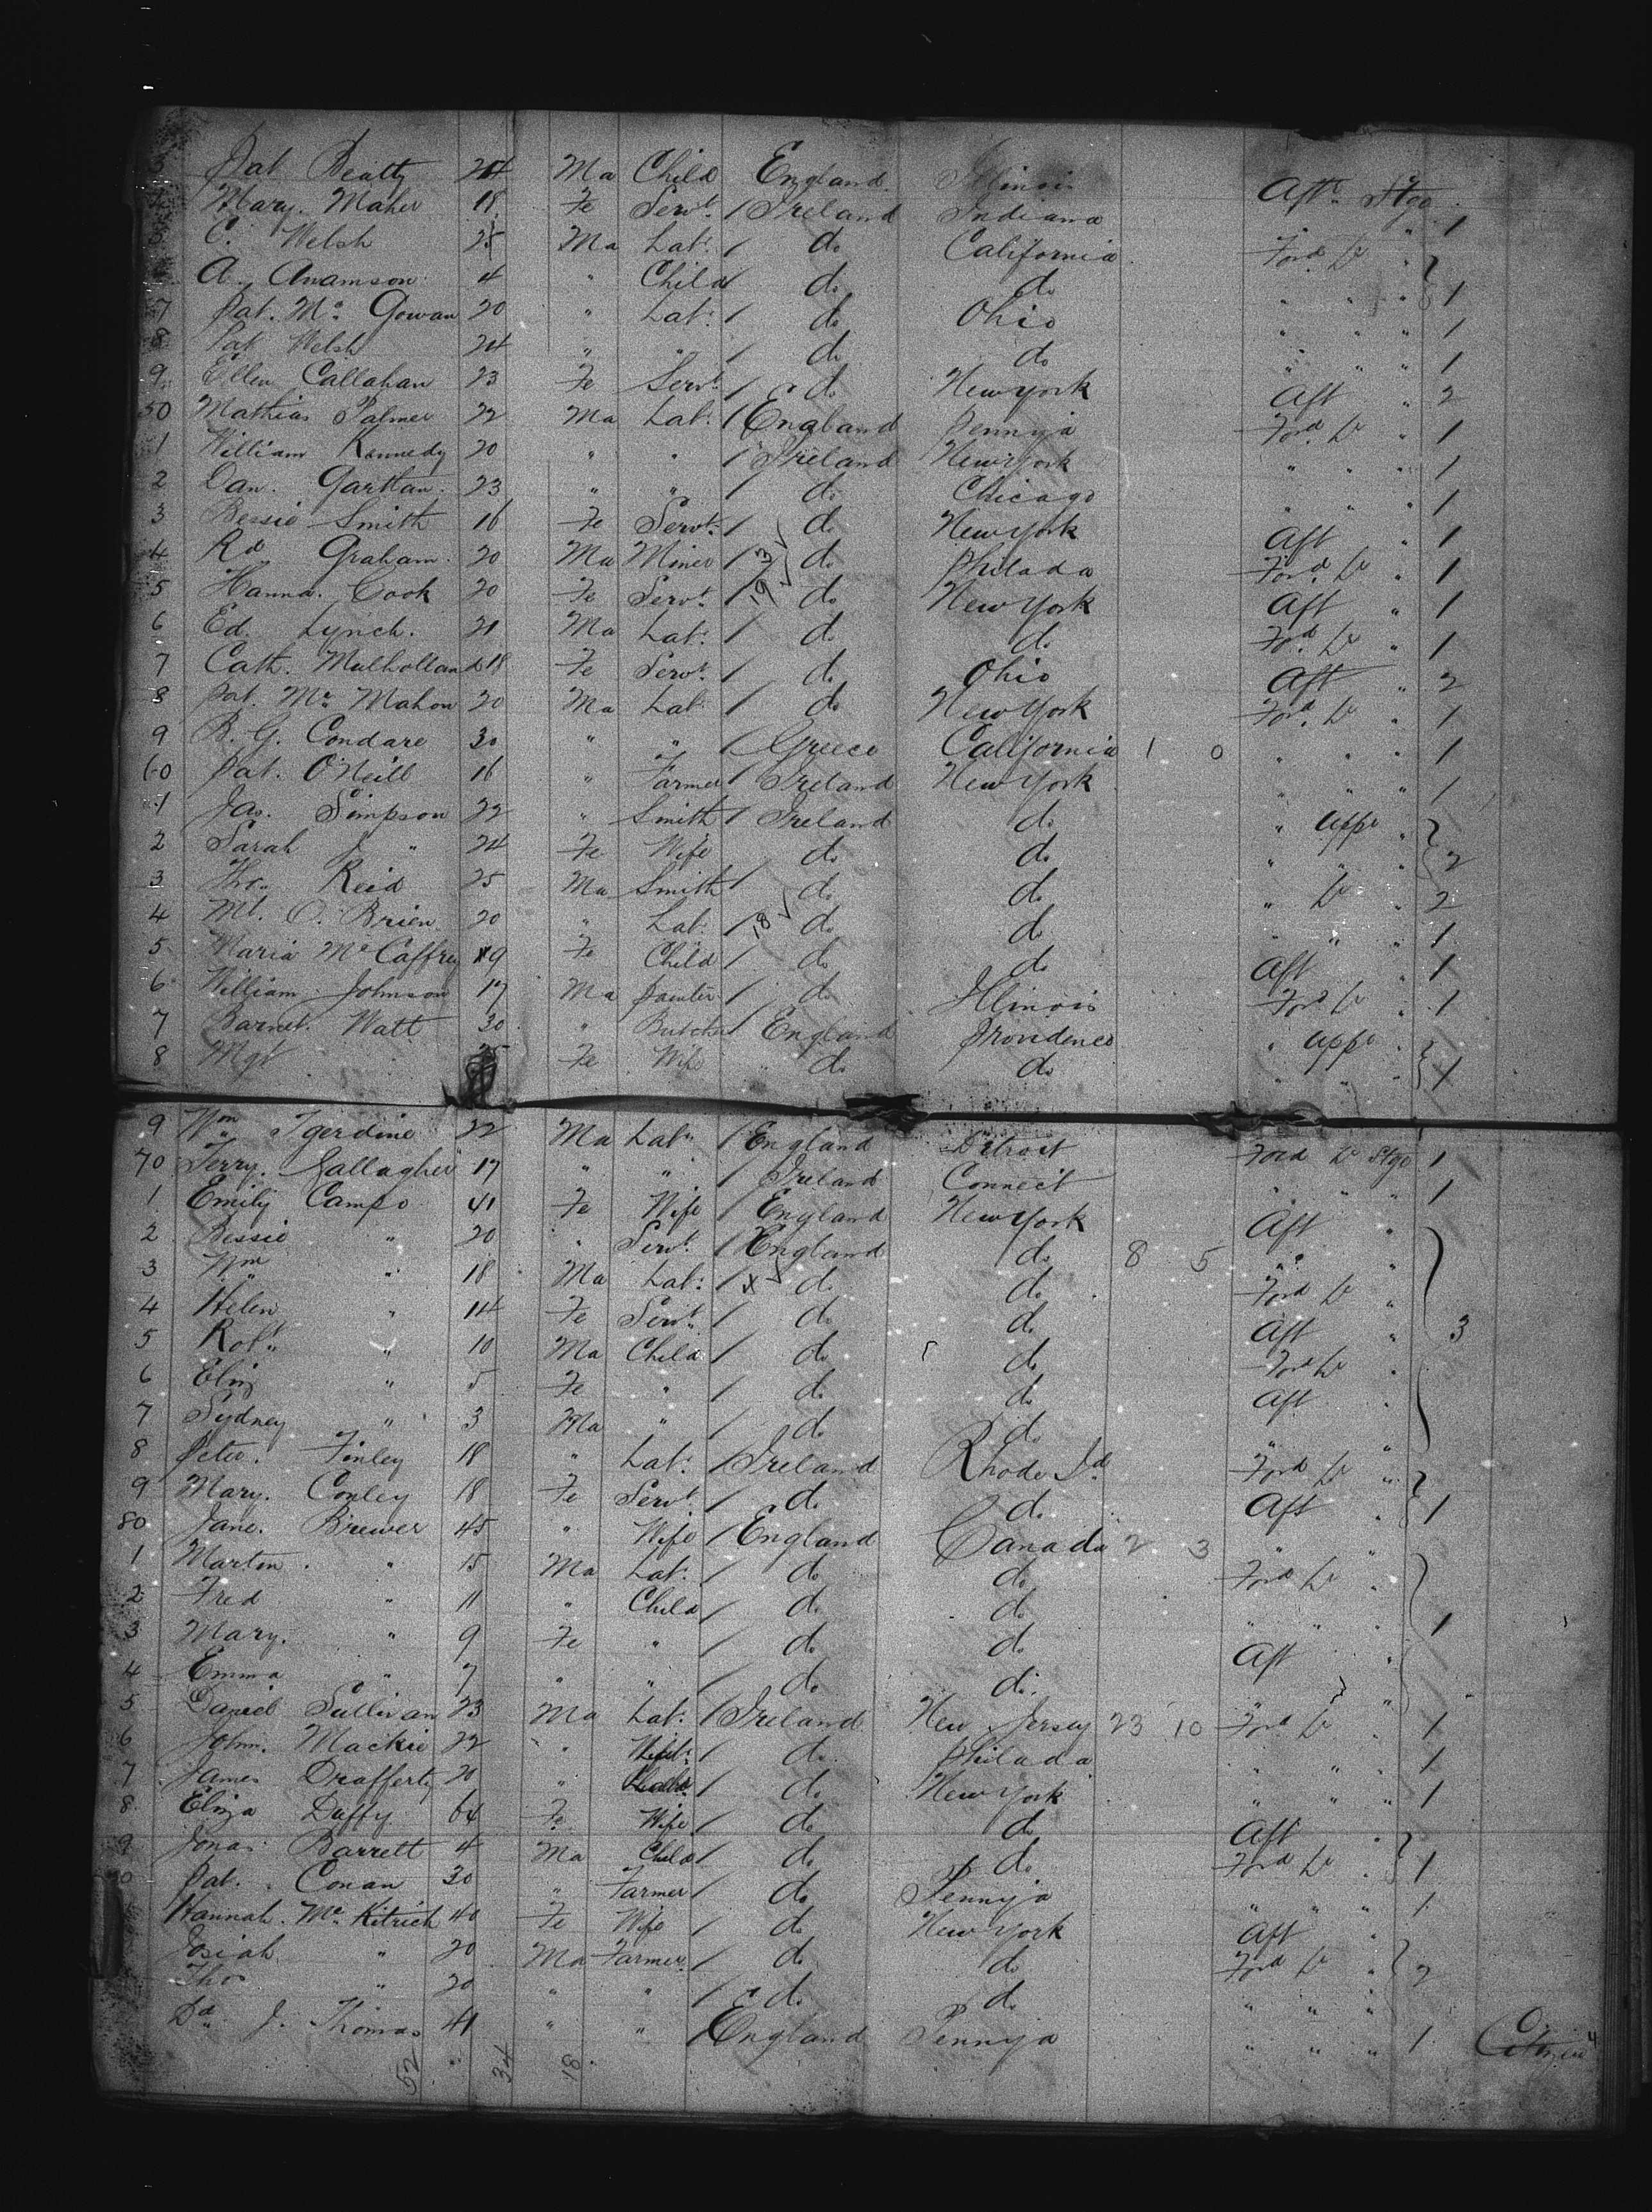 3 Pat Beatty 24 Ma Child England Illinois Aft Stge
4 Mary Maher 18 Fe Servt. 1 Ireland Indiana " " 1
5 C. Welsh 25 Ma Labr. 1 do California Ford Lr "
A. Anamson 4 " Child 1 do do " " " 1
7 Pat. Mc Gowan 20 " Labr. 1 do Ohio " " " 1
8 Pat Welsh 24 " " 1 do do " " " 1
9 Ellen Callahan 23 Fe Servt. 1 do New York Aft " 2
50 Mathias Palmer 22 Ma Labr. 1 England Pennya Ford. Lr " 1
1 William Kennedy 20 " " 1 Ireland New York " " " 1
2 Dan. Garttan 23 " " 1 do Chicago " " " 1
3 Bessie Smith 16 Fe Servt. 1 do New York Aft " 1
4 Rd Graham 20 Ma Miner 1 do Philada Ford. Lr " 1
5 Hanna. Cook 20 Fe Servt. 1 19 do New York Aft " 1
6 Ed. Lynch. 21 Ma Labr. 1 do do Ford. Lr " 1
7 Cath. Mulholland 18 Fe Servt. 1 do Ohio Aft " 2
8 Pat. Mc Mahon 20 Ma Labr 1 do New York Ford. Lr " 1
9 B. G. Condare 30 " " 1 Greece California 1 0 " " " 1
60 Pat. O'Neill 16 " Farmer 1 Ireland New York " " " 1
1 Jas. Simpson 22 " Smith 1 Ireland do " uppr "
2 Sarah J " 24 Fe Wife do do " " " 2
3 Thos. Reid 25 Ma Smith 1 do do " Lr " 2
4 Ml. O'Brien 20 " Labr. 1 18 do do " " " 1
5 Maria Mc Caffrey 9 Fe Child 1 do do Aft " 1
6 William Johnson 17 Ma Painter 1 do Illinois Ford Lr " 1
7 Barnet. Watt 30 " Butcher 1 England Providence " uppr "
8 Mgt Fe Wife " do do " " " 1
9 Wm Igerdine 22 Ma Labr. 1 England Detroit Ford Lr Stge 1
70 Terry. Gallagher 17 " " 1 Ireland Connect " " " 1
1 Emily Campo 41 Fe Wife 1 England New York Aft "
2 Bessie " 20 " Servt. 1 England do 8 5 " "
3 Wm " 18 Ma Labr. 1 x do do Ford Lr "
4 Helen " 14 Fe Servt. 1 do do Aft " 3
5 Robt. " 10 Ma Child 1 do do Ford Lr "
6 Eliz " 5 Fe " 1 do do Aft "
7 Sydney " 3 Ma " 1 do do " "
8 Peter. Finley 18 " Labr. 1 Ireland Rhode Id Ford Lr "
9 Mary. Conley 18 Fe Servt 1 do do Aft " 1
80 Jane. Brewer 45 " Wife 1 England Canada 2 3 " "
1 Martin " 15 Ma Labr. 1 do do Ford Lr "
2 Fred " 11 " Child 1 do do " " "
3 Mary. " 9 Fe " 1 do do Aft " 1
4 Emma " 7 " " 1 do do " "
5 Daniel Sullivan 23 Ma Labr. 1 Ireland New Jersey 23 10 Ford Lr " 1
6 John. Mackie 22 " 1 do Philada " " " 1
7 James Drafferty 20 " 1 do New York " " " 1
8 Eliza Duffy 64 Fe Wife 1 do do Aft "
9 Jonas Barrett 4 Ma Child 1 do do Ford Lr " 1
0 Pat. Conan 30 " Farmer 1 do Pennya " " " 1
Hannah. Mc Kitrick 40 Fe Wife 1 do New York Aft "
Josiah " 20 Ma Farmer 1 do do Ford Lr " 2
Thos " 20 " " 1 do do " " "
Dd J. Thomas 41 " " 1 England Pennya " " " 1 Citizen
52 34 18